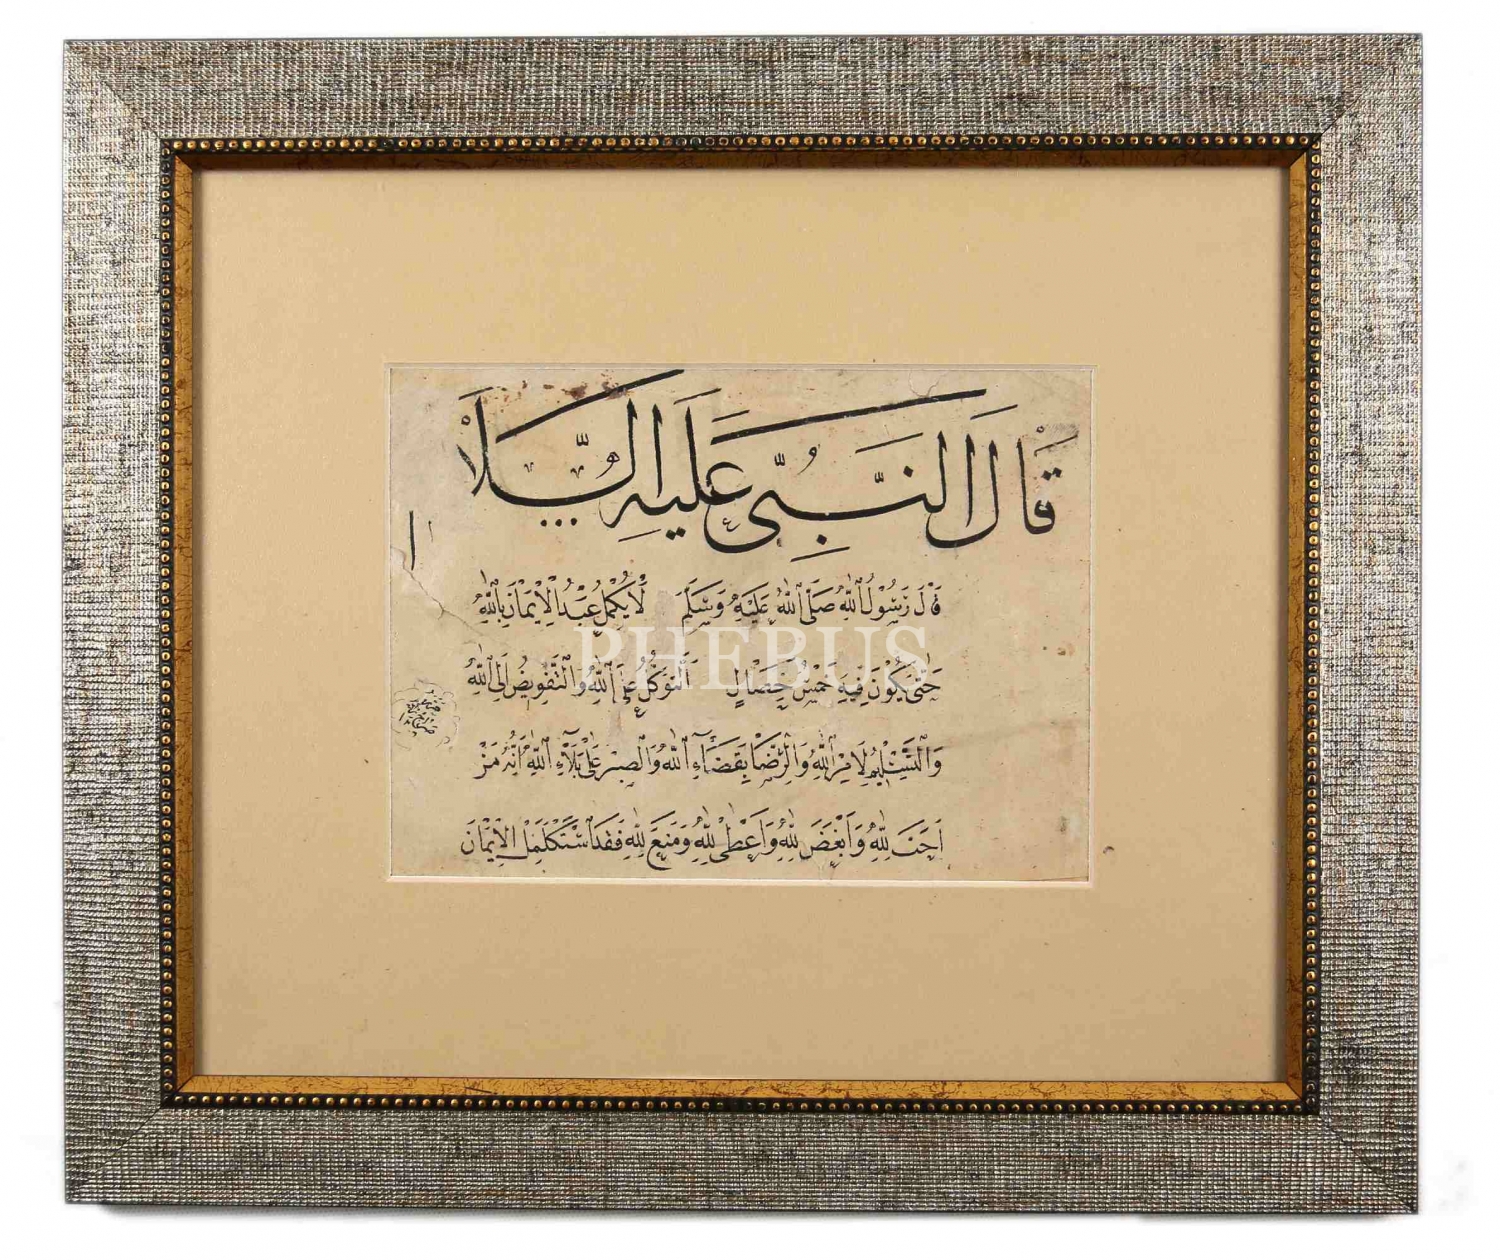 قَالَ النَّبِيُّ عَلَيْهِ السَّلَا
قَالَ رَسُولُ اللهِ صَلَّى اللهُ عَلَيْهِ وَسَلَّمَ لَا يَكْمُلُ عَبْدُ الْاِيْمَانَ بِاللهِ
حَتّٰى يَكُوْنَ فِيْهِ خَمْسُ خِصَالٍ اَلتَّوَكُّلُ عَلَى اللهِ وَالتَّفْوِيْضُ اِلَى اللهِ
وَالتَّسْلِيْمُ لِاَمْرِ اللهِ وَالرِّضَا بِقَضَاءِ اللهِ وَالصَّبْرُ عَلٰى بَلَاءِ اللهِ اِنَّهُ مَنْ
اَحَبَّ لِلّٰهِ وَاَبْغَضَ لِلّٰهِ وَاَعْطٰى لِلّٰهِ وَمَنَعَ لِلّٰهِ فَقَدِ اسْتَكْمَلَ الْاِيْمَانَ
PHEBUS